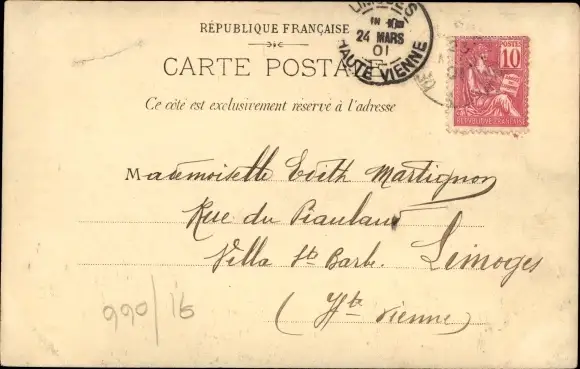 LIMOGES
24 MARS
01
HAUTE VIENNE
RÉPUBLIQUE FRANÇAISE
CARTE POSTALE
Ce côté est exclusivement réservé à l'adresse
POSTES
10
REPUBLIQUE FRANÇAISE
Mademoiselle Edith Martignon
Rue du
Villa Ste Barbe. Limoges
(Hte Vienne)
990/16